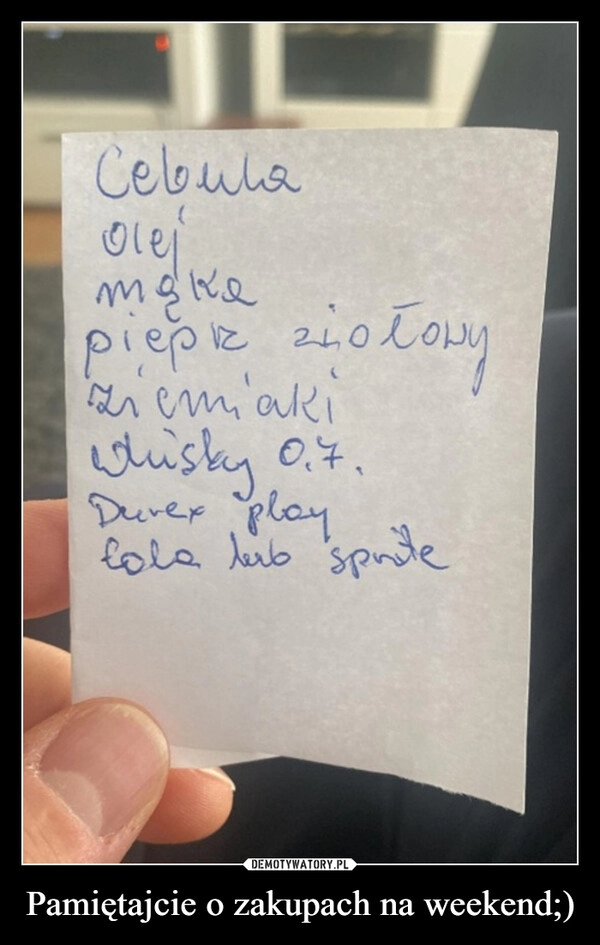 Cebula
olej
mąka
pieprz ziołowy
ziemiaki
whisky 0.7.
Durex play
Cola lub sprite
DEMOTYWATORY.PL
Pamiętajcie o zakupach na weekend;)